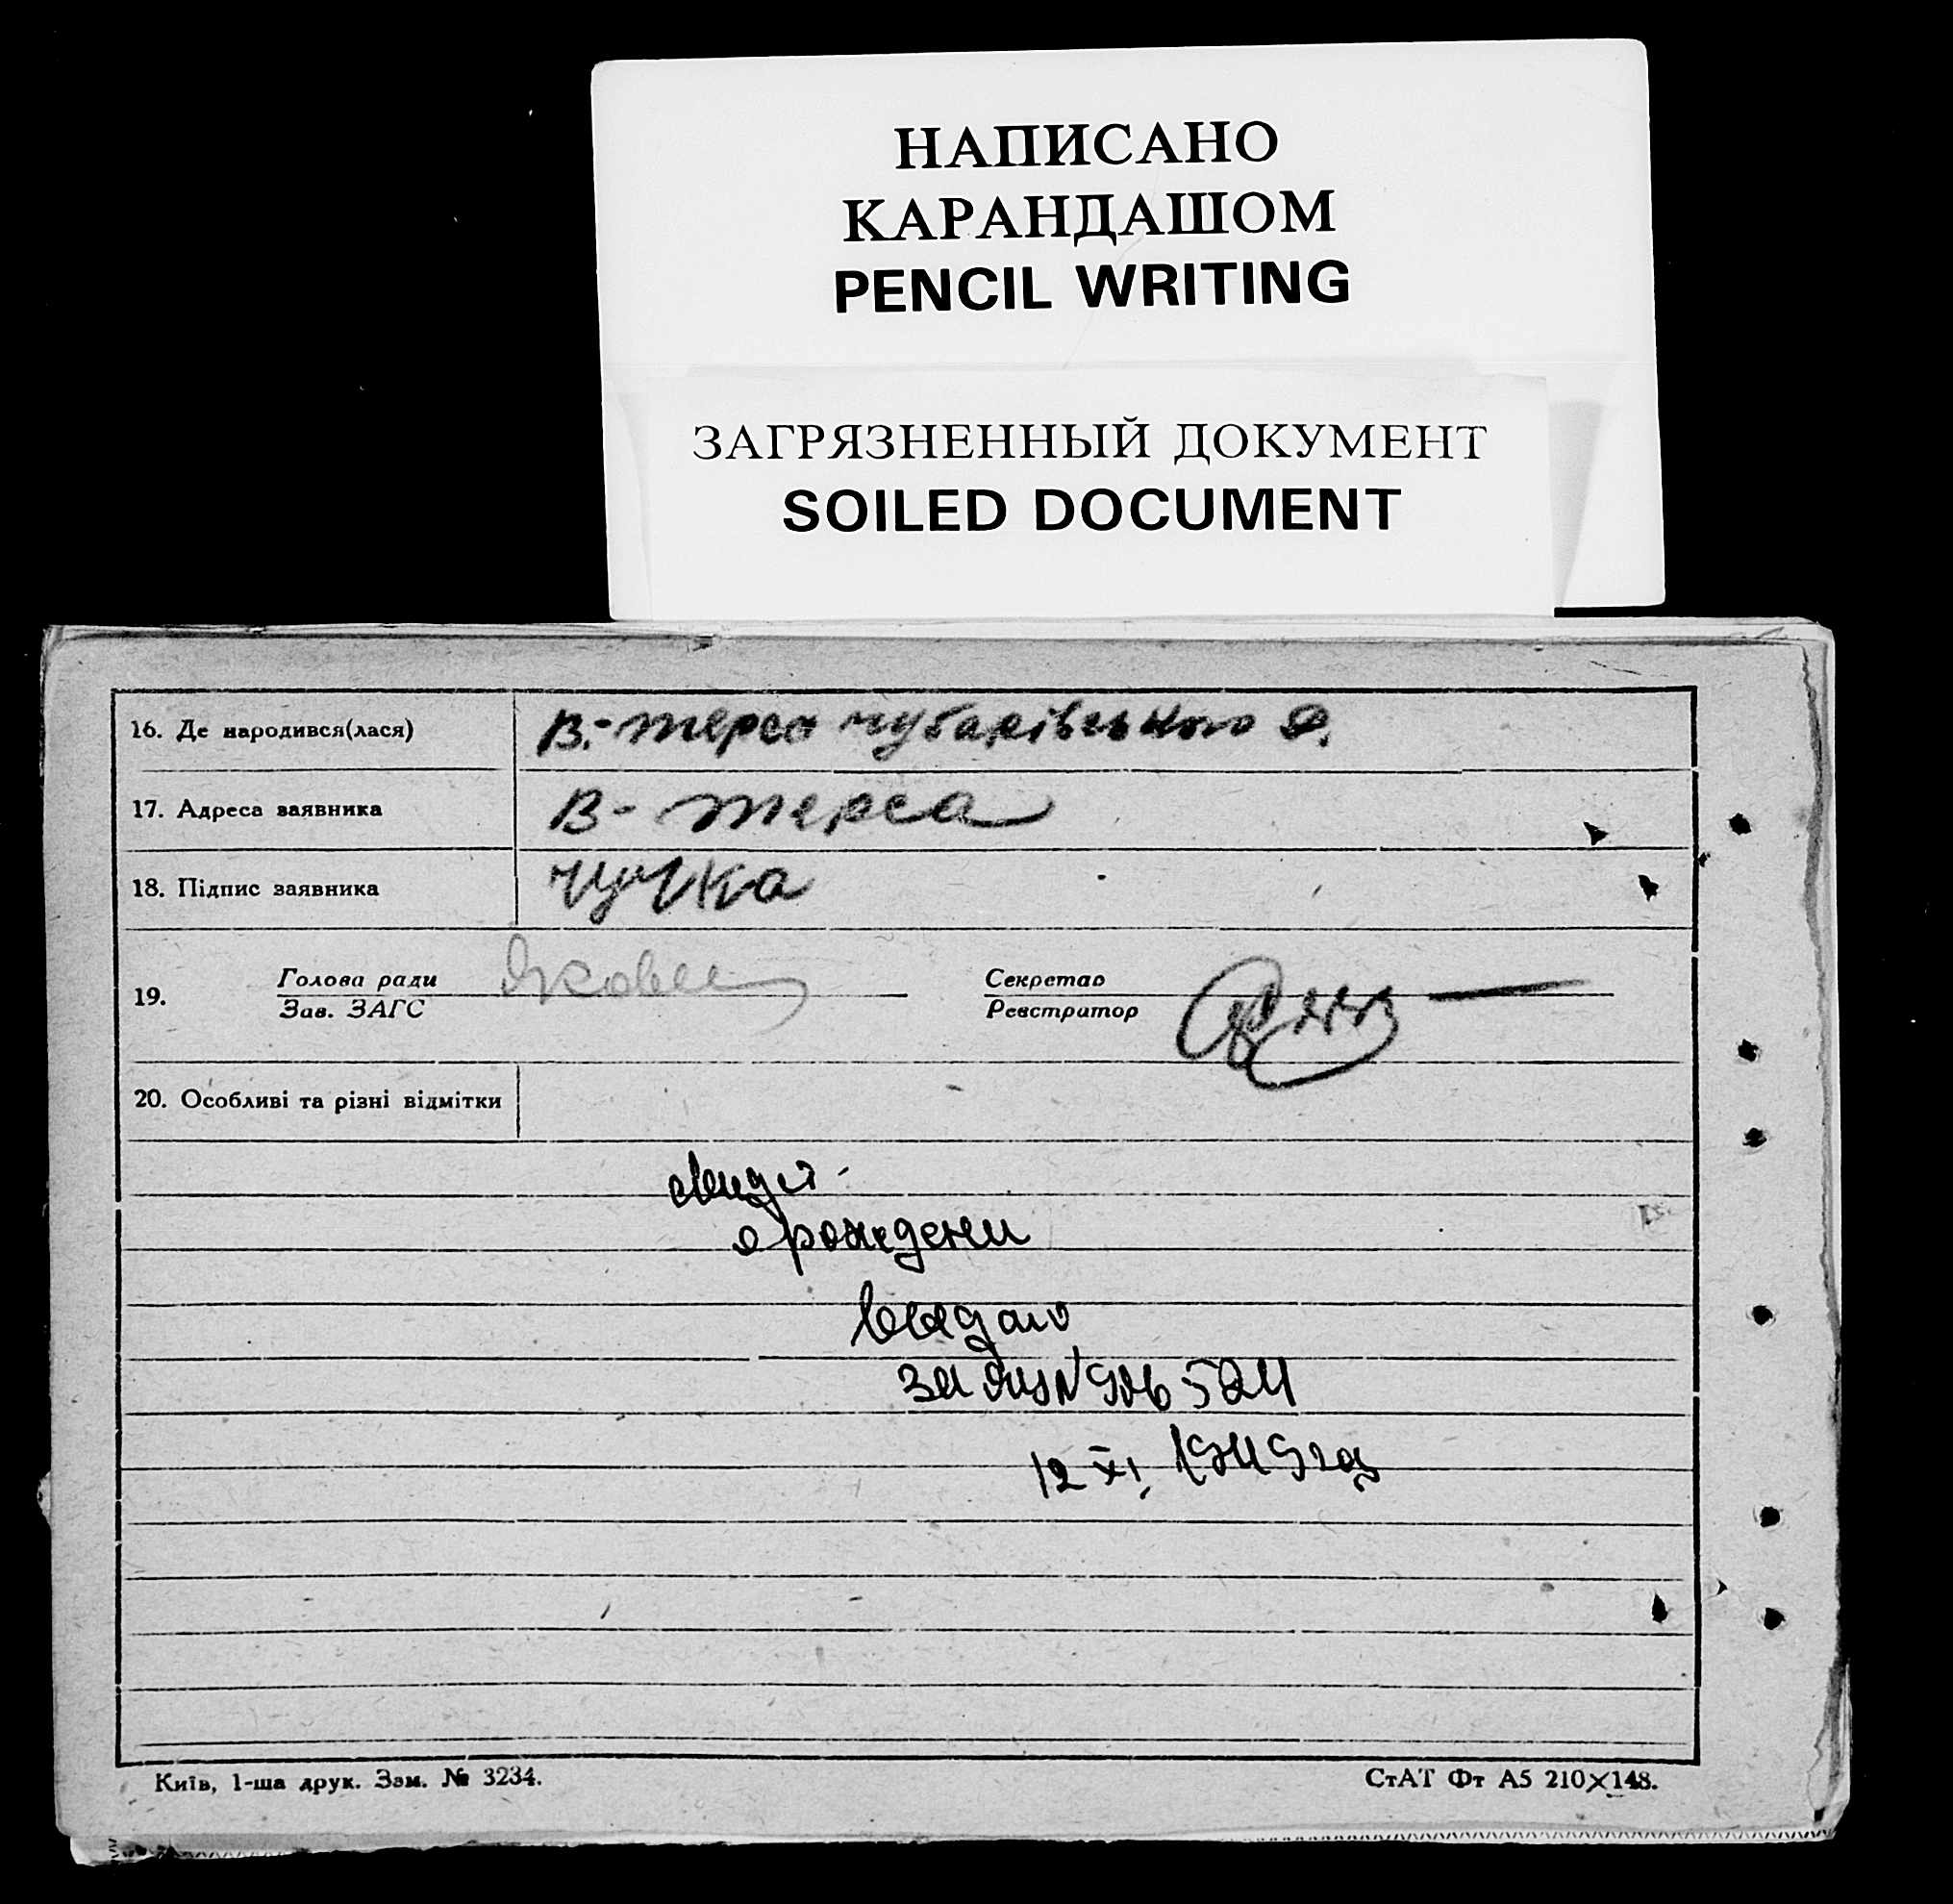 НАПИСАНО
КАРАНДАШОМ
PENCIL WRITING
ЗАГРЯЗНЕННЫЙ ДОКУМЕНТ
SOILED DOCUMENT
16. Де народився(лася) В.-Терса чубарівського Р.
17. Адреса заявника В-Терса
18. Підпис заявника чучка
19. Голова ради Секретар
Зав. ЗАГС Реєстратор
20. Особливі та різні відмітки
свидет-
о рождени
выдано
за
12 XI, 1949 год
Київ, 1-ша друк. Зам. № 3234.
СтАТ Фт А5 210×148.